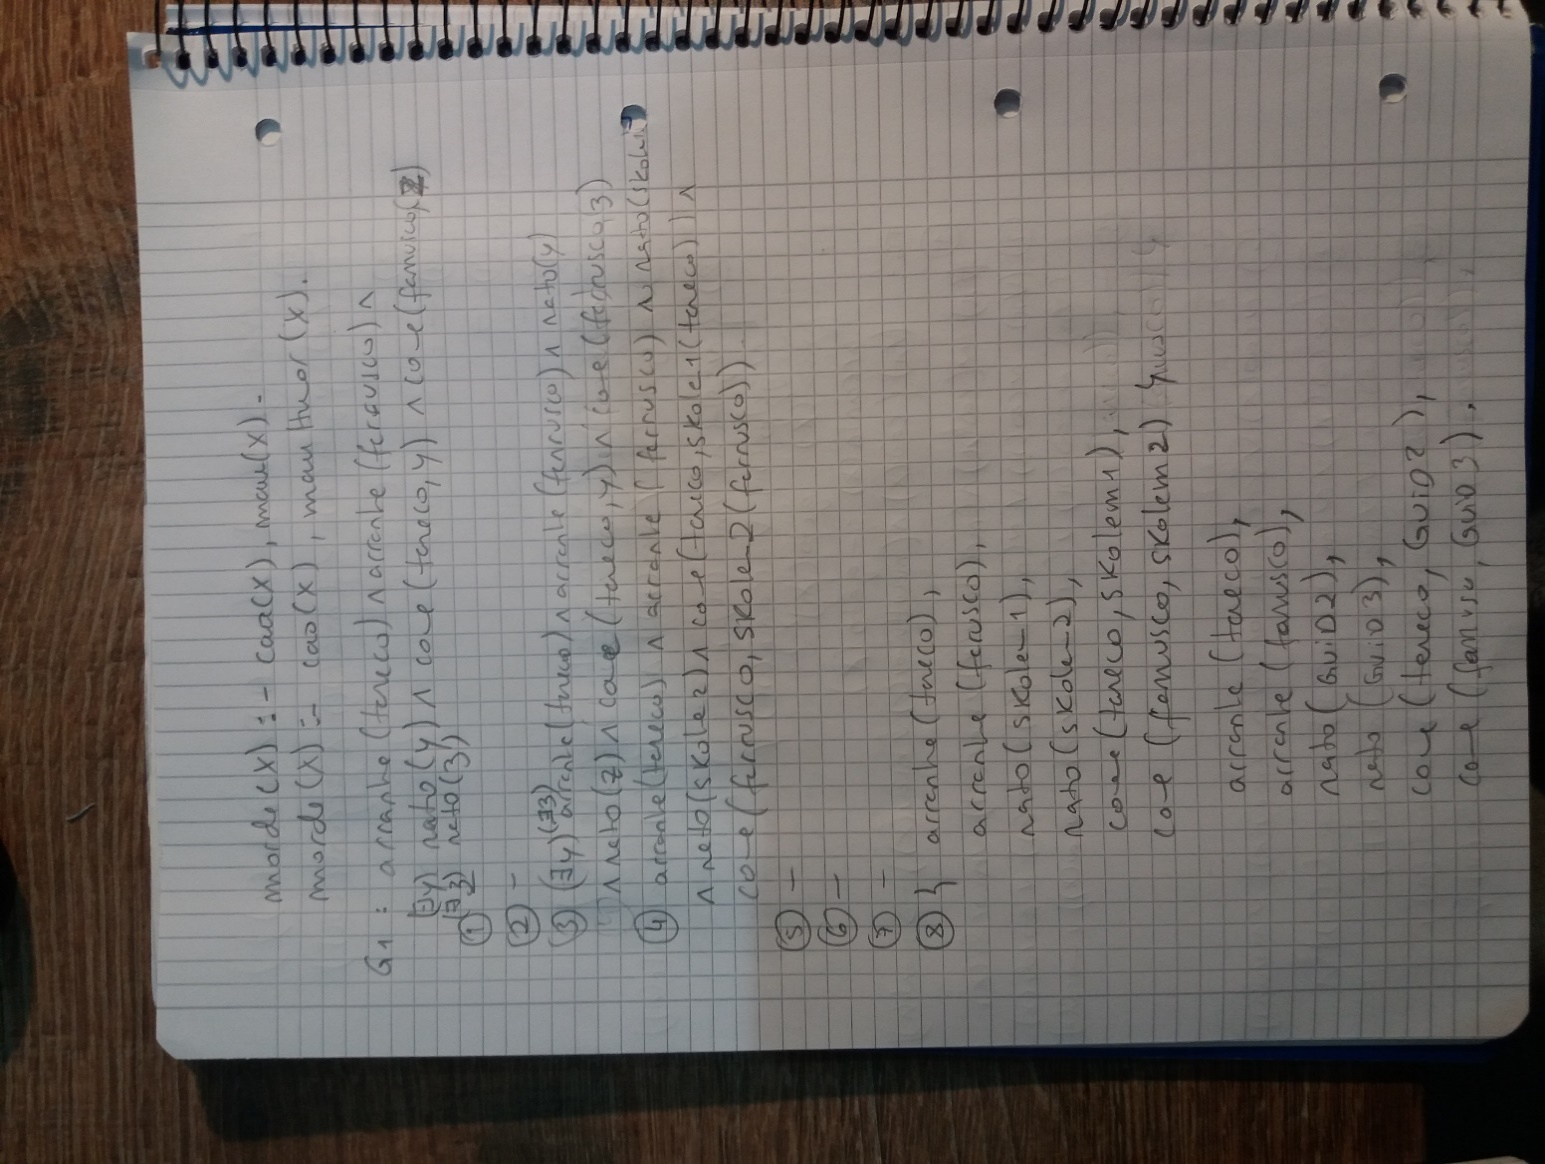 morde(X) :- cao(X), mau(X).
morde(X) :- cao(X), mau humor(X).
G1 : arranhe(tareco) ∧ arranhe(ferrusco) ∧
(∃y) rato(y) ∧ come(tareco, y) ∧ come(ferrusco, z)
(∃z) rato(z)
① 
② -
③ (∃y)(∃z) arranhe(tareco) ∧ arranhe(ferrusco) ∧ rato(y)
∧ rato(z) ∧ come(tareco, y) ∧ come(ferrusco, z)
④ arranhe(tareco) ∧ arranhe(ferrusco) ∧ rato(skolem1)
∧ rato(skolem2) ∧ come(tareco, skolem1(tareco)) ∧
come(ferrusco, skolem2(ferrusco))
⑤ -
⑥ -
⑦ -
⑧ { arranhe(tareco),
arranhe(ferrusco),
rato(skolem1),
rato(skolem2),
come(tareco, skolem1),
come(ferrusco, skolem2) }
arranhe(tareco),
arranhe(ferrusco),
rato(GUID2),
rato(GUID3),
come(tareco, GUID2),
come(ferrusco, GUID3).